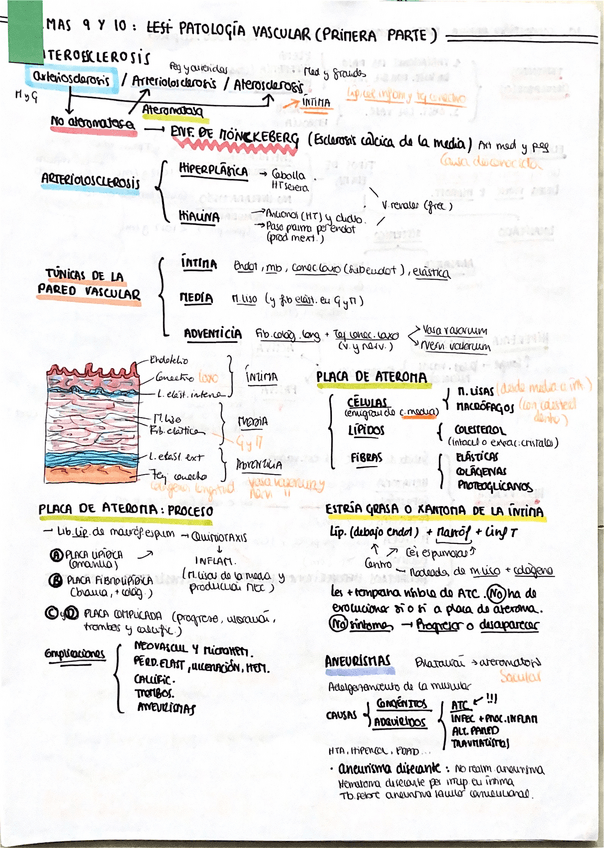 MAS 9 Y 10: LESI PATOLOGÍA VASCULAR (PRIMERA PARTE)
TEROESCLEROSIS
Peq y arteriolas Med y grandes
arteriosclerosis / Arteriolosclerosis / Aterosclerosis
M y G ÍNTIMA
Ateromatosa
No ateromatosa → ENF. DE MÖNCKEBERG (Esclerosis cálcica de la media) Art med y peq
Causa desconocida
ARTERIOLOSCLEROSIS
HIPERPLÁSICA → Cebolla
HT severa
V. renales (frec)
HIALINA → Ancianos (HT) y diabe.
→ Paso plasma por endot
(prod mext.)
TÚNICAS DE LA PARED VASCULAR
ÍNTIMA Endot, mb, conec laxo (subendot), elástica
MEDIA M. liso (y fib elást. en G y M)
ADVENTICIA Fib. colág. long + Tej conec. laxo
(V. y nerv.)
Vasa vasorum
Nervi vasorum
Endotelio
Conectivo laxo
L. elast. interna
ÍNTIMA
M. liso
Fib. elástica
MEDIA
G y M
L. elast ext
Tej conecto
ADVENTICIA
PLACA DE ATEROMA
CÉLULAS
(emigran de c. media)
M. LISAS (desde media a ínt)
MACRÓFAGOS
LÍPIDOS COLESTEROL
(intracel o extrac. cristales)
FIBRAS ELÁSTICAS
COLÁGENAS
PROTEOGLICANOS
PLACA DE ATEROMA: PROCESO
→ Lib Lip. de macróf espum → QUIMIOTAXIS
↓
INFLAM.
(M. lisas de la media y
producían MEC)
A PLACA LIPÍDICA
(amarilla)
B PLACA FIBROLIPÍDICA
(blanca, + colág.)
C y D PLACA COMPLICADA (progreso, ulceración,
trombos y calcific.)
Complicaciones
NEOVASCUL Y MICROHEM.
PERD. ELAST, ULCERACIÓN, HEM.
CALCIFIC.
TROMBOS.
ANEURISMAS
ESTRÍA GRASA O XANTOMA DE LA ÍNTIMA
Lip. (debajo endot) + Macróf + Linf T
Cel espumosas
Centro - Rodeada de m. liso + colágeno
Les + temprana visible de ATC. No ha de
evolucionar sí o sí a placa de ateroma.
No síntomas → Progresar o desaparecer
ANEURISMAS
Sacular
Adelgazamiento de la muscular
CAUSAS
CONGÉNITOS
ADQUIRIDOS
ATC !!!
INFEC + PROC. INFLAM
ALT. PARED
TRAUMATISMOS
HTA, HIPERCOL, EDAD...
· aneurisma disecante: No realm aneurisma
Hematoma disecante por irrup en íntima
Tb. sobre aneurisma sacular convencional.